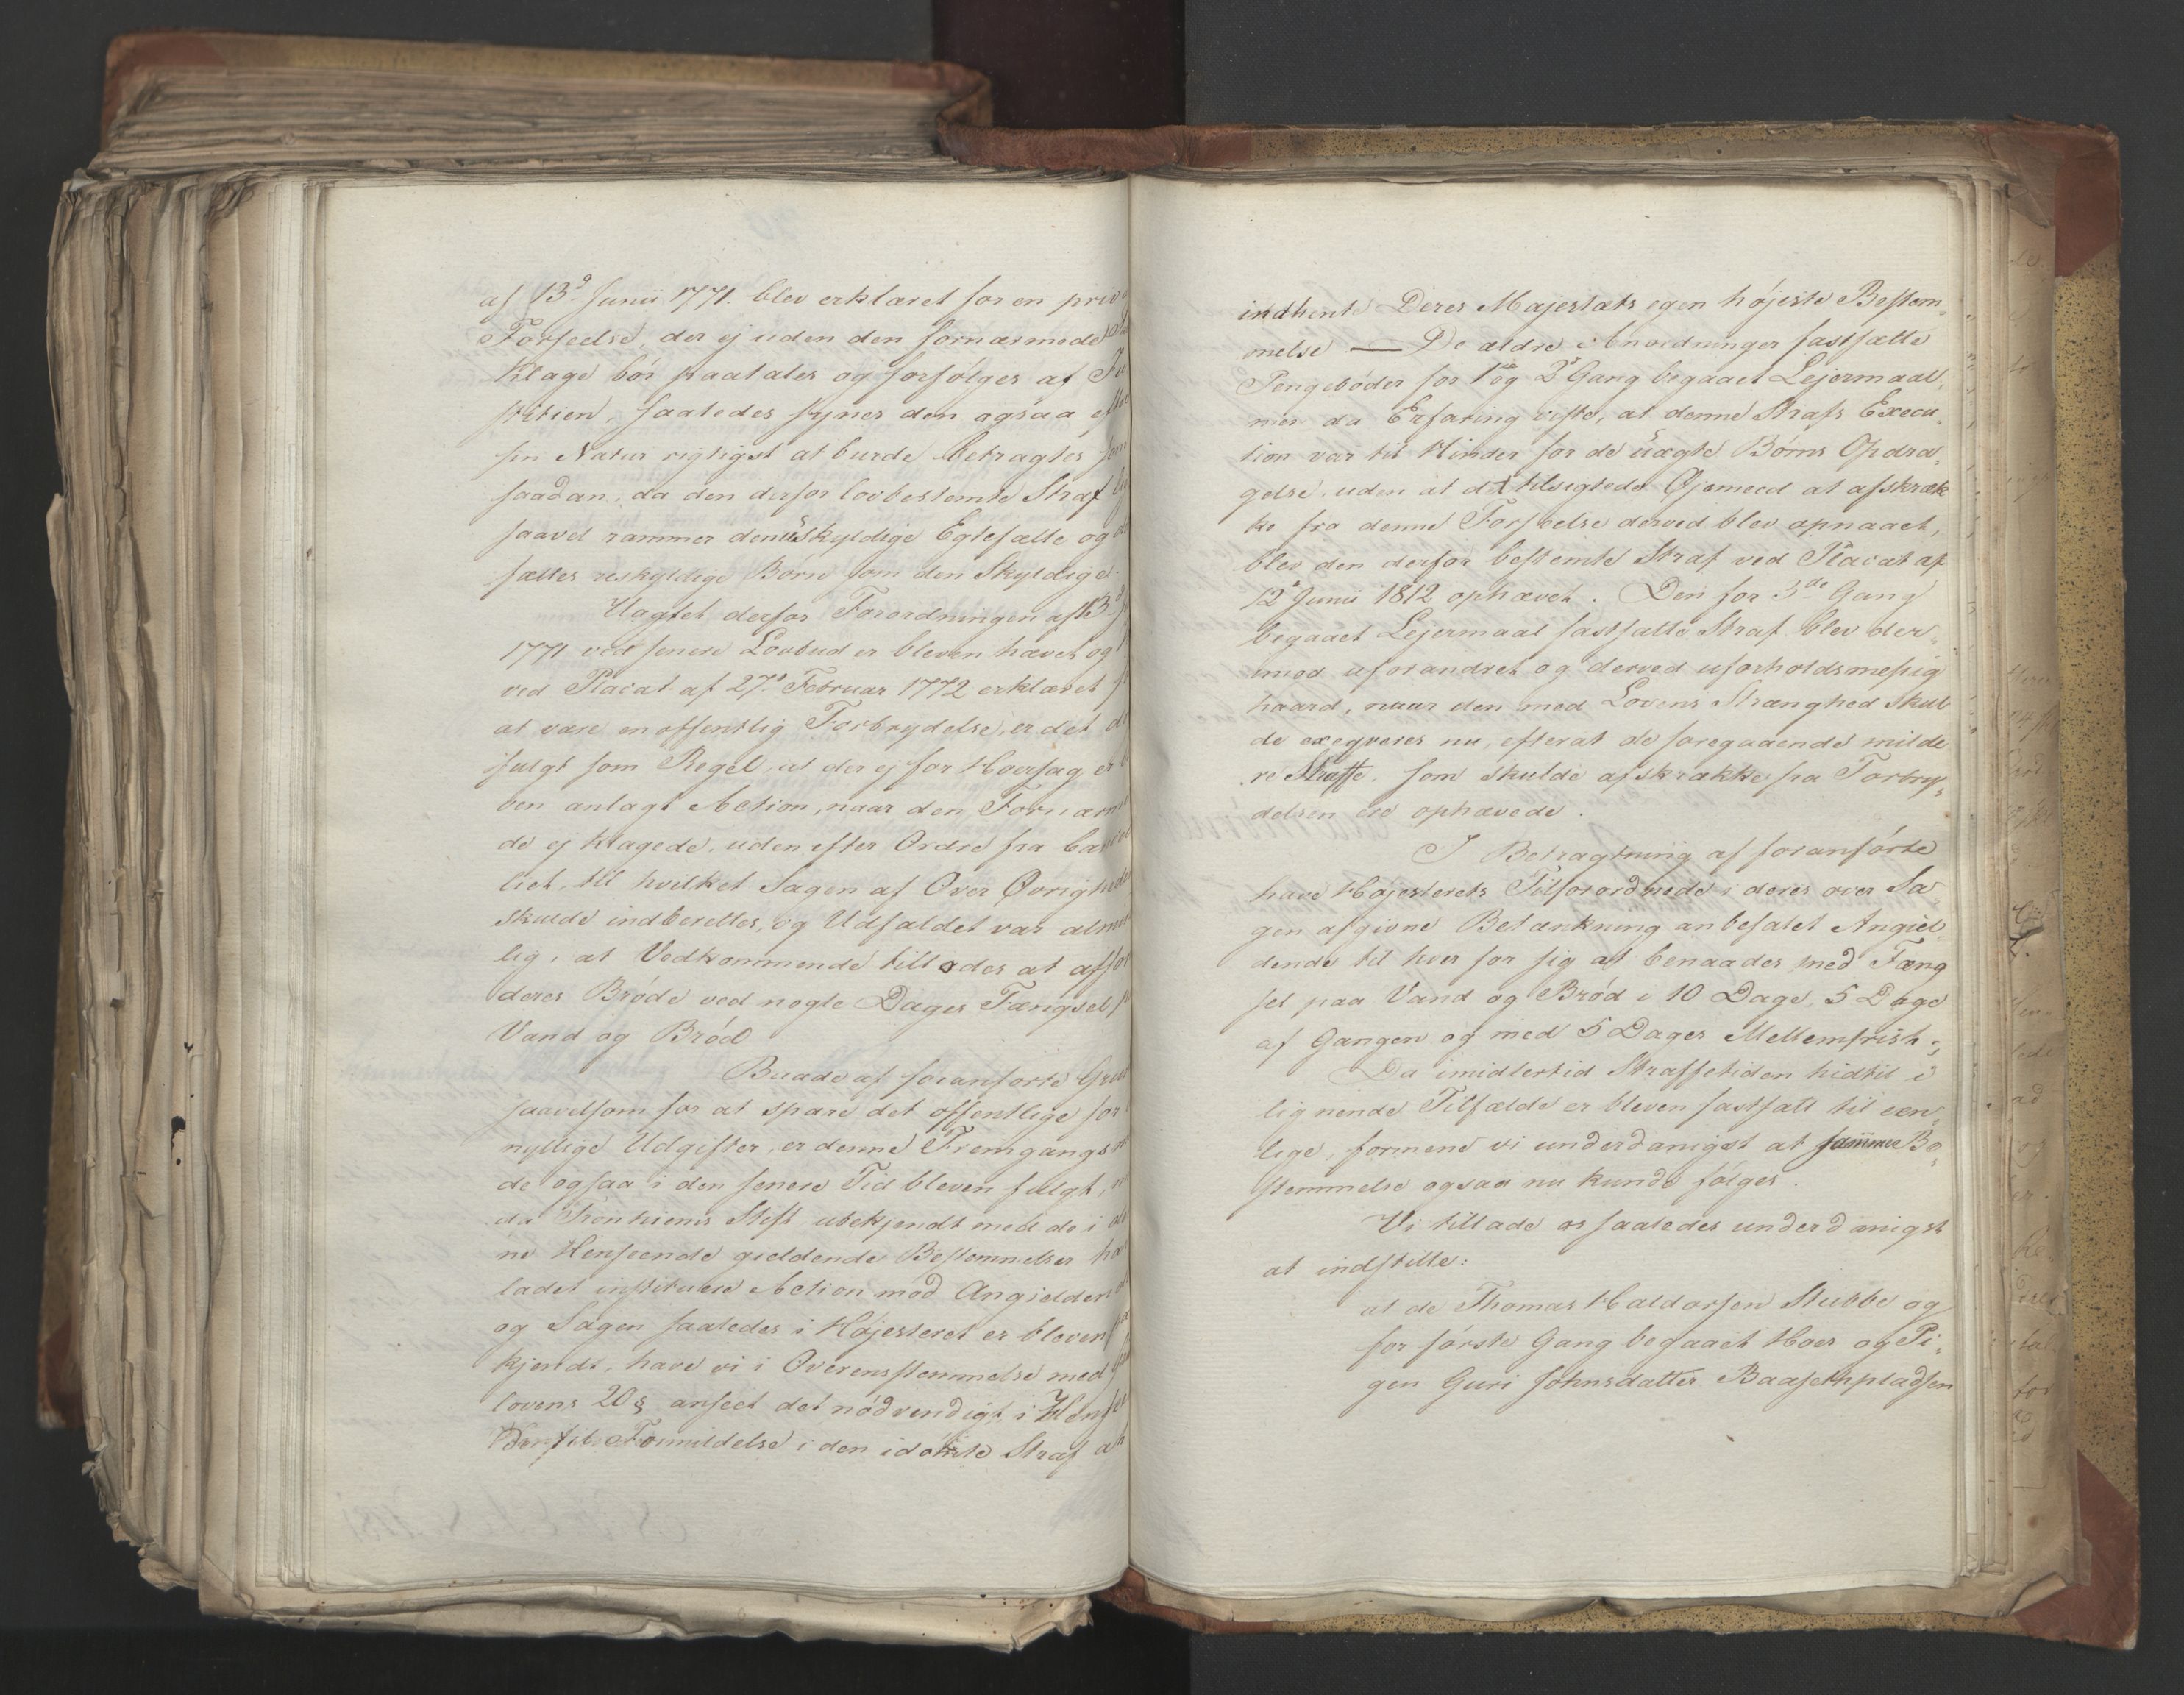 af 13de Junii 1771. blev erklæret for en priv
Forseelse, der ej uden den fornærmedes
Klage bör paatales og forfölges af Ju
stitien, saaledes synes den ogsaa efter
sin Natur rigtigst at burde betragtes som
saadan, da den derfor lovbestemte Straf
saavel rammer den uskyldige Egtefælle og
fælles uskyldige Börn som den Skyldige.
Uagtet derfor Forordningen af 13de
1771 ved senere Lovbud er bleven hævet og
ved Placat af 27de Februar 1772 erklæret
at være en offentlig Forbrydelse, er det
fulgt som Regel, at der ej for Hoersag er
ven anlagt Action, naar den Fornærm
de ej klagede, uden efter Ordre fra Cancel
liet, til hvilket Sagen af Over Øvrighede
skulde indberettes, og Udfaldet var almin
lig, at Vedkommende tillodes at affo
deres Bröde ved nogle Dages Fængsel p
Vand og Bröd
Baade af foranförte Grun
saavelsom for at spare det offentlige for
nyttige Udgifter, er denne Fremgangs
de ogsaa i den senere Tid bleven fulgt,
da Tronhiems Stift ubekjendt med de i
ne Henseende gieldende Bestemmelser ha
ladet instituere Action mod Angielden
og Sagen saaledes i Højesteret er bleven
kjendt, have vi i Overensstemmelse med
lovens 20 § anseet det nödvendigt i Hense
Formildelse i den idömte Straf at
indhente Deres Majestæts egen höjeste Bestem¬
melse — De ældre Anordninger fastsætte
Pengeböder for 1ste og 2den Gang begaaet Lejermaal,
men da Erfaring viste, at denne Strafs Execu¬
tion var til Hinder for de uægte Börns Opdra¬
gelse, uden at det tilsigtede Øjemeed at afskræk
ke fra denne Forseelse derved blev opnaaet,
blev den derfor bestemte Straf ved Placat af
12te Junii 1812 ophævet. Den for 3de Gang
begaaet Lejermaal fastsatte Straf blev der¬
imod uforandret og derved uforholdsmæssig
haard, naar den med Lovens Strænghed skul
de exeqveres nu, efterat de foregaaende milde
re Straffe, som skulde afskrække fra Forbry¬
delsen ere ophævede.
I Betragtning af foranförte
have Höjesterets Tilforordnede i deres over Sa¬
gen afgivne Betænkning anbefalet Angiel¬
dende til hver for sig at benaades med Fæng
sel paa Vand og Bröd i 10 Dage, 5 Dage
af Gangen og med 5 Dages Mellemfrist;
Da imidlertid Straffetiden hidtil i
lignende Tilfælde er bleven fastsatt til
lige, formene vi underdanigst at samme Be¬
stemmelse ogsaa nu kunde fölges.
Vi tillade os saaledes underdanigst
at indstille:
at de Thomas Haldorsen Stubbe og
for förste Gang begaaet Hoer og Pi¬
gen Guri Johnsdatter Baasethpladsen